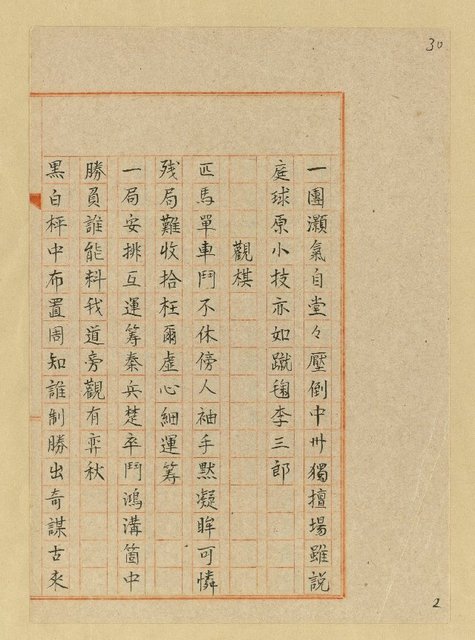 30
一團灝氣自堂々壓倒中卅獨擅場雖說
庭球原小技亦如蹴毱李三郎
觀棋
匹馬單車鬥不休傍人袖手默凝眸可憐
残局難收拾枉爾虛心細運籌
一局安排互運籌秦兵楚卒鬥鴻溝箇中
勝負誰能料我道旁觀有弈秋
黑白枰中布置周知誰制勝出奇謀古来
2